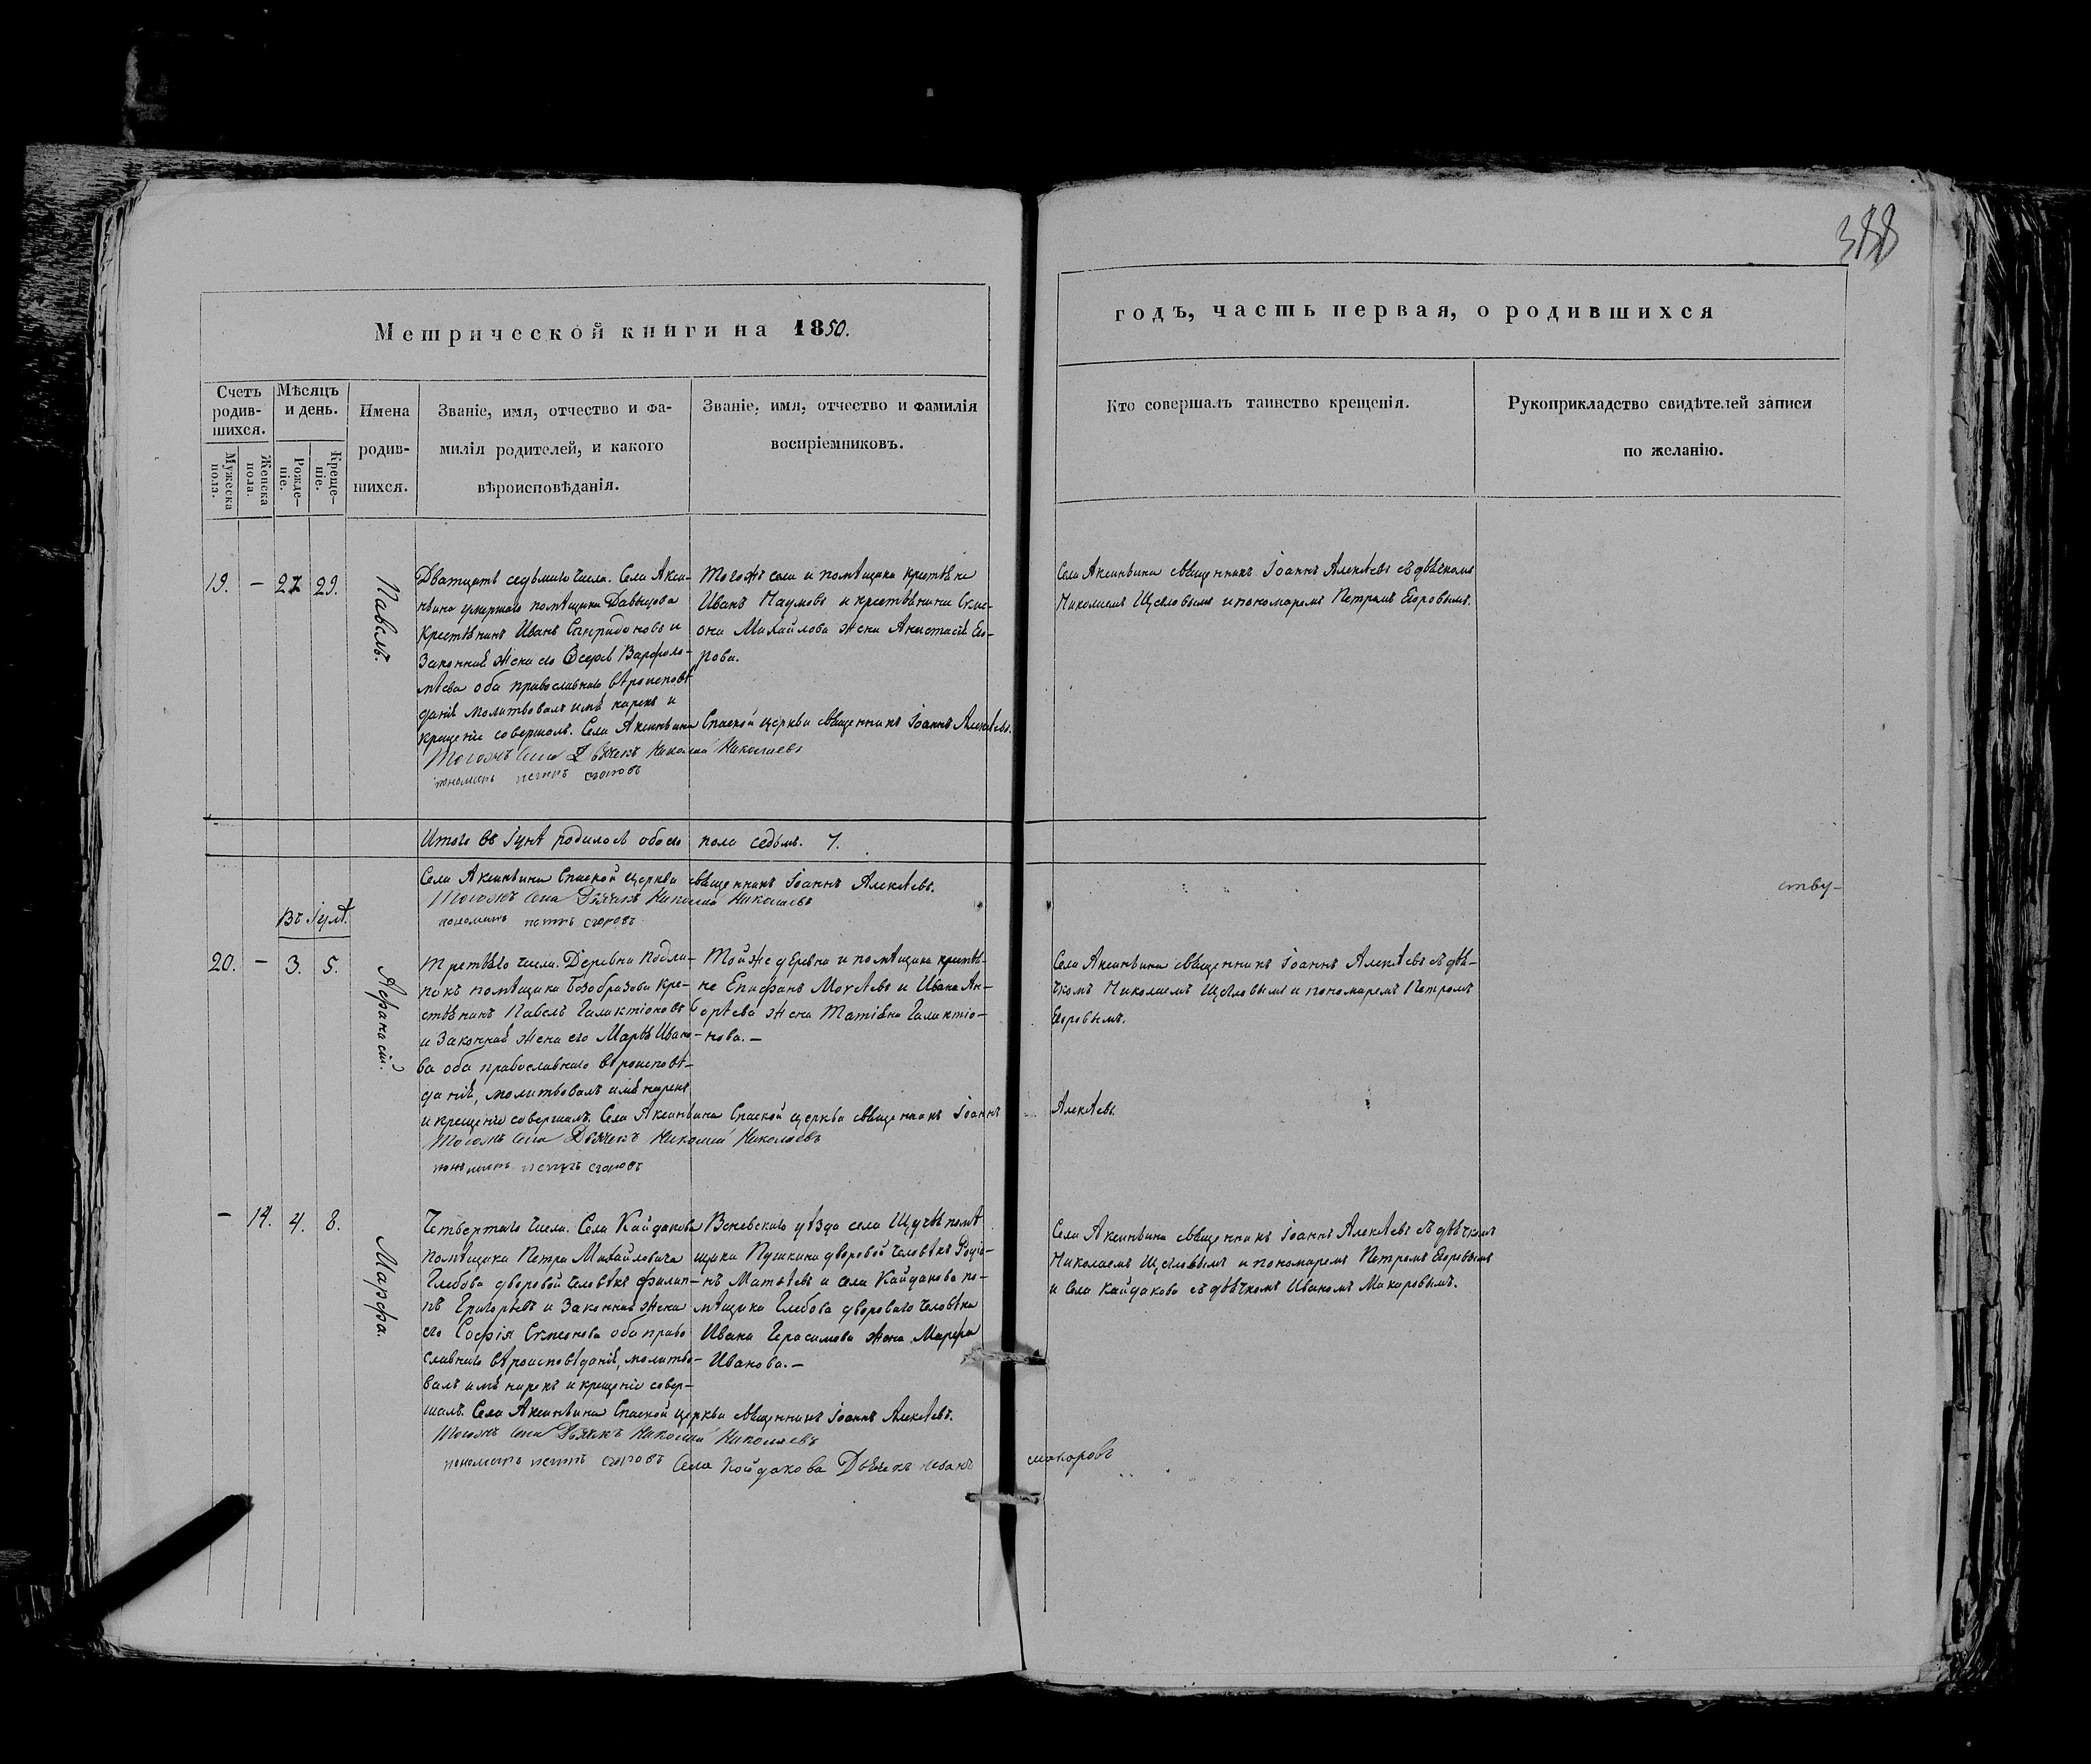 388
Метрической книги на 1850.
годъ, часть первая, о родившихся
Счетъ родив-шихся.
Мужеска пола.
Женска пола.
Мѣсяцъ и день.
Рожде-ніе.
Креще-ніе.
Имена
родив-
шихся.
Званіе, имя, отчество и фа-
милія родителей, и какого
вѣроисповѣданія.
Званіе, имя, отчество и фамилія
воспріемниковъ.
Кто совершалъ таинство крещенія.
Рукоприкладство свидѣтелей записи
по желанію.
19. – 27 29.
Павелъ.
Дватцать седьмаго числа. Села Акси-
ньина умершаго помѣщика Давыдова
крестьянинъ Иванъ Спиридоновъ и
законная жена его Варфоло-
мѣева оба православнаго вѣроисповѣ
данія молитвовалъ имя нарекъ и
крещеніе совершалъ. Села Аксиньина Спаской церкви священникъ Іоаннъ Алексѣевъ.
Тогожъ села Дьячекъ Николай Николаевъ
пономарь петръ егоровъ
Тогожъ села и помѣщика крестьяне
Иванъ Наумовъ и крестьянина Симе-
она Михайлова жена Анастасія Его-
рова.
Села Аксиньина священникъ Іоаннъ Алексѣевъ съ дьячкомъ
Николаемъ Щегловымъ и пономаремъ Петромъ Егоровымъ.
Итого въ Іунѣ родилось обоего пола седьмь. 7.
Села Аксиньина Спаской церкви священникъ Іоаннъ Алексѣевъ.
Тогожъ села Дьячекъ Николай Николаевъ
пономарь петръ егоровъ
ству-
Въ Іулѣ.
20. – 3. 5.
Афанасій.
Третьяго числа. Деревни Подли-
покъ помѣщика Безобразова кре-
стьянинъ Павелъ Галактіоновъ
и законная жена его Марѳа Ивано-
ва оба православнаго вѣроисповѣ-
данія, молитвовалъ имя нарекъ
и крещеніе совершалъ. Села Аксиньина Спаской церкви священникъ Іоаннъ Алексѣевъ
Тогожъ села Дьячекъ Николай Николаевъ
пономарь петръ егоровъ
Той же деревни и помѣщика крестья-
не Епифанъ и Ивана Ан-
дрѣева жена Татіана Галактіо-
нова. –
Села Аксиньина священникъ Іоаннъ Алексѣевъ съ дья-
чкомъ Николаемъ Щегловымъ и пономаремъ Петромъ
Егоровымъ.
– 14. 4. 8.
Марфа.
Четвертаго числа. Села Кайдакова
помѣщика Петра Михайловича
Глебова дворовой человѣкъ Филип-
пъ Григорьевъ и законная жена
его Софія Симеонова оба право
славнаго вѣроисповѣданія, молитво-
валъ имя нарекъ и крещеніе совер-
шалъ. Села Аксиньина Спаской церкви священникъ Іоаннъ Алексѣевъ.
Тогожъ села Дьячекъ Николай Николаевъ
пономарь петръ егоровъ Села Койдакова Дьячекъ иванъ макаровъ
Веневскаго уѣзда села Щучья помѣ
щика Пушкина дворовой человѣкъ Родіо-
нъ Матвѣевъ и села Кайдакова по-
мѣщика Глебова двороваго человѣка
Ивана Герасимова жена Марфа
Иванова. –
Села Аксиньина священникъ Іоаннъ Алексѣевъ съ дьячкомъ
Николаемъ Щегловымъ и пономаремъ Петромъ Егоровымъ
и Села Кайдакова съ дьячкомъ Иваномъ Макаровымъ.